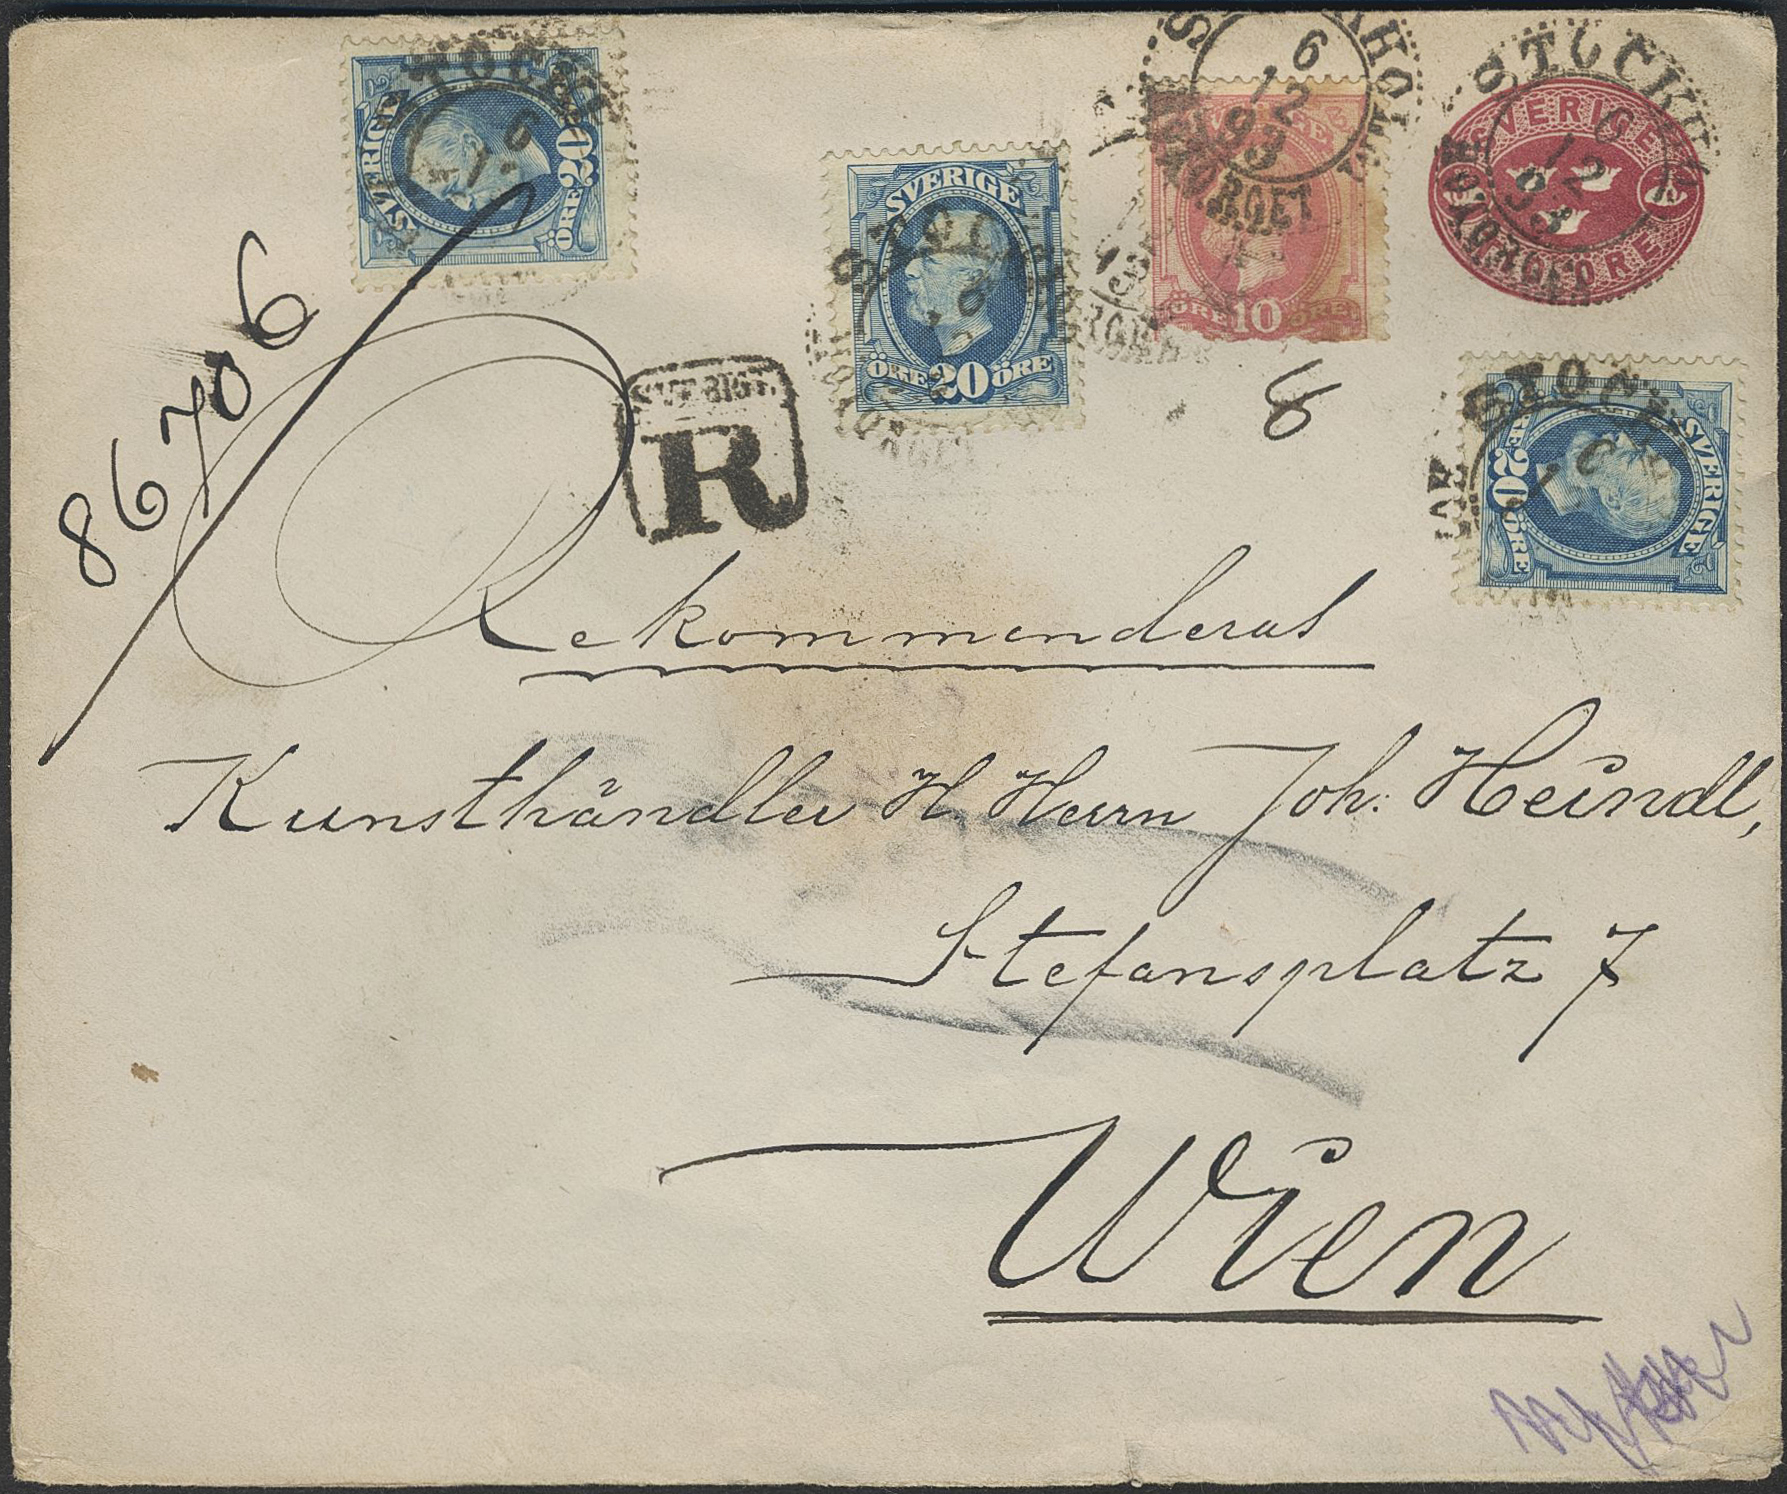 SVERIGE
ÖRE 20
SVERIGE
ÖRE 20 ÖRE
ÖRE 10 ÖRE
SVERIGE
ÖRE
SVERIGE
20 ÖRE
STOCKHOLM
6
12
93
NORRKÖPING
86706
8
R
Rekommenderas
Kunsthändler H. Herrn Joh. Heindl,
Stefansplatz 7
Wien